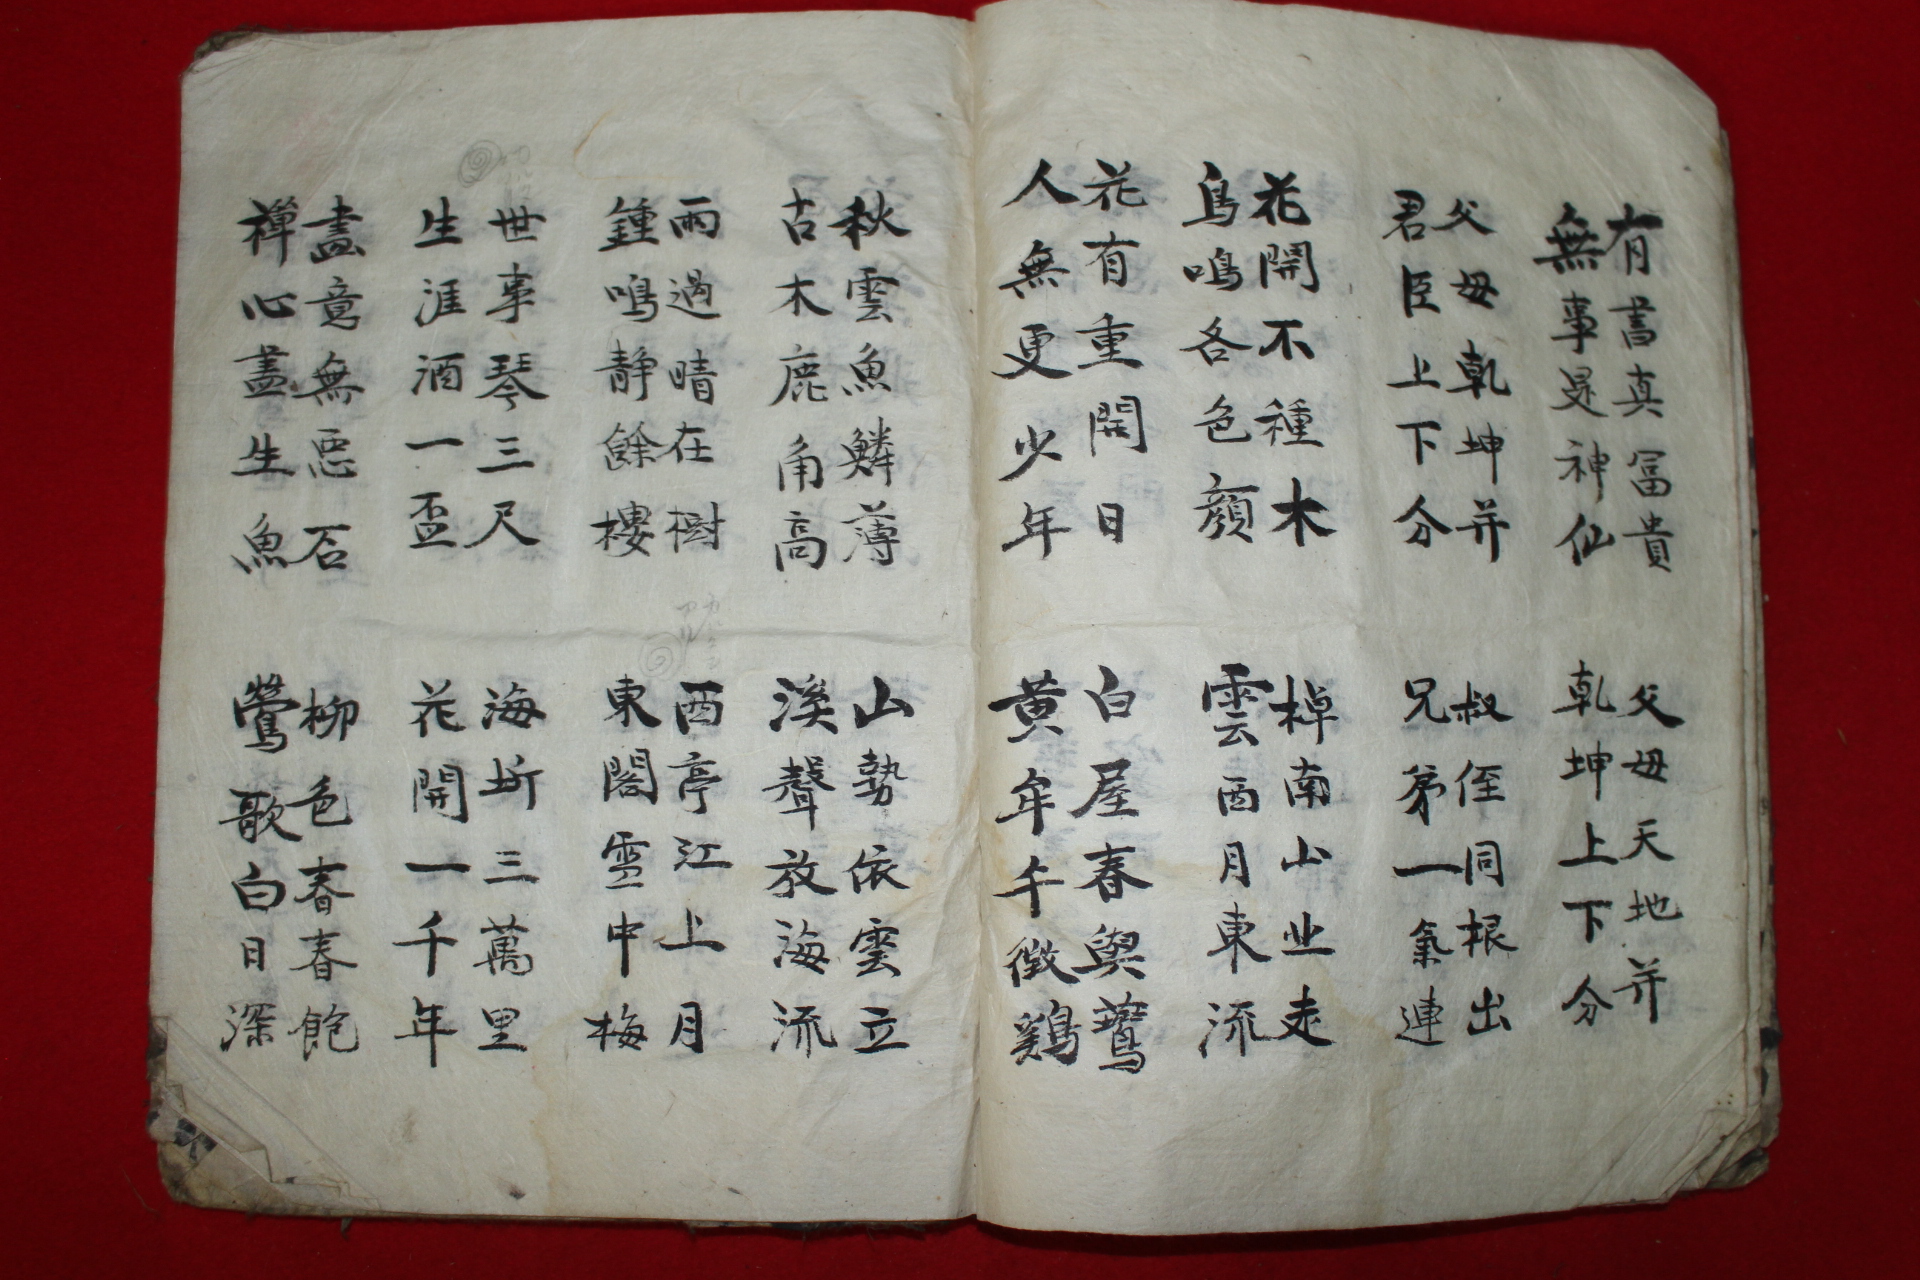 有書真冨貴
無事是神仙
父母天地并
乾坤上下分
父母乾坤并
君臣上下分
叔侄同根出
兄弟一氣連
花開不種木
鳥鳴各色顔
棹南山北走
雲西月東流
花有重開日
人無更少年
白屋春與鷰
黄牟午徴鷄
秋雲魚鱗薄
古木鹿角高
山勢依雲立
溪聲放海流
雨過晴在樹
鍾鳴静餘樓
西亭江上月
東閣雪中梅
世事琴三尺
生涯酒一盃
海圻三萬里
花開一千年
畵意無惡石
禅心盡生魚
柳色春春飽
鶯歌白日深